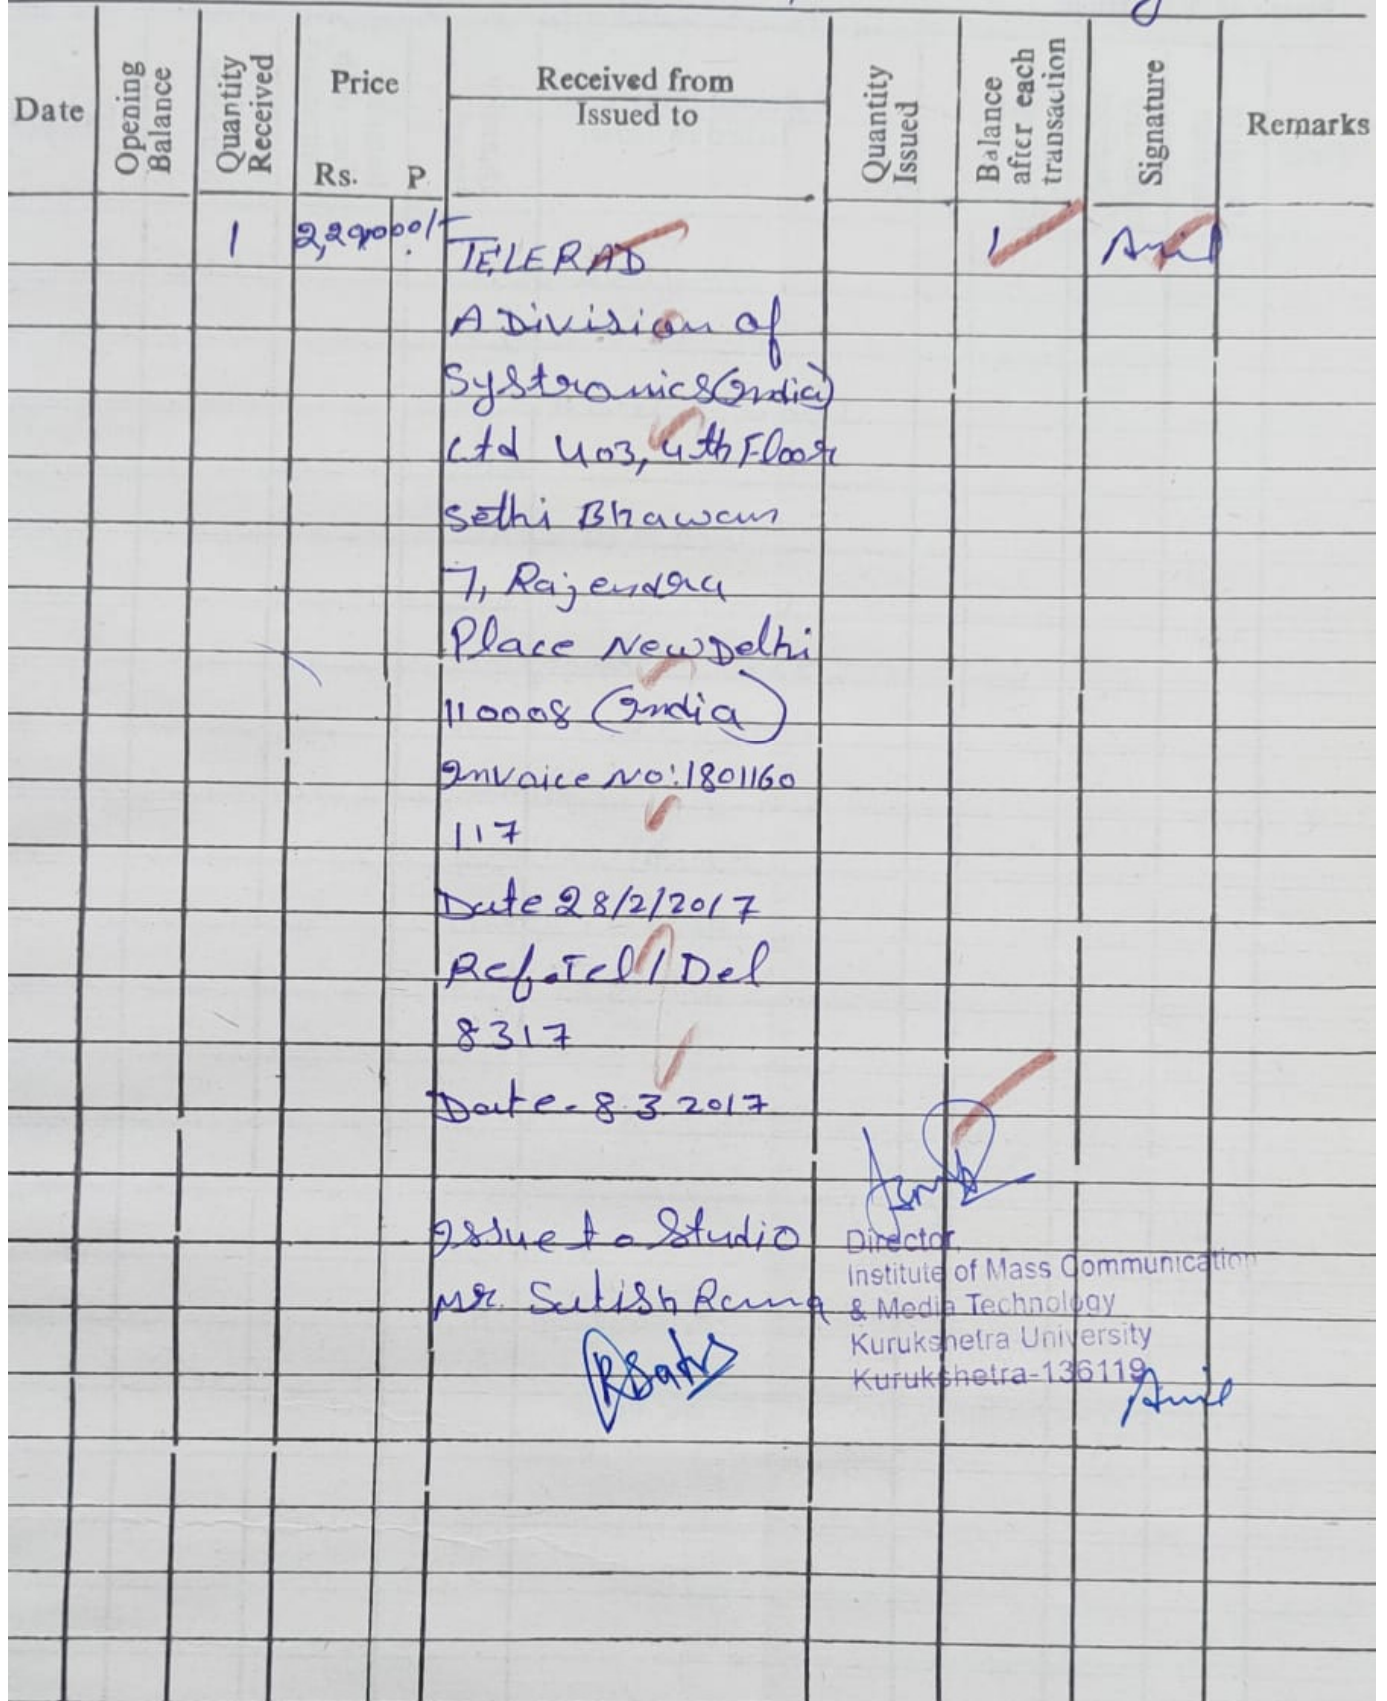 Date
Opening Balance
Quantity Received
Price
Rs. P.
Received from
Issued to
Quantity Issued
Balance after each transaction
Signature
Remarks
1 TELERAD 1 Anil
A Division of
Systronics (India)
Ltd 403, 4th Floor
Sethi Bhawan
7, Rajendra
Place New Delhi
110008 (India)
Invoice No: 1801160
117
Date 28/2/2017
Ref. Tel / Del
8317
Date - 8.3.2017
Issue to Studio
Mr. Satish Rana
RSatis
Director,
Institute of Mass Communication
& Media Technology
Kurukshetra University
Kurukshetra-136119
Anil